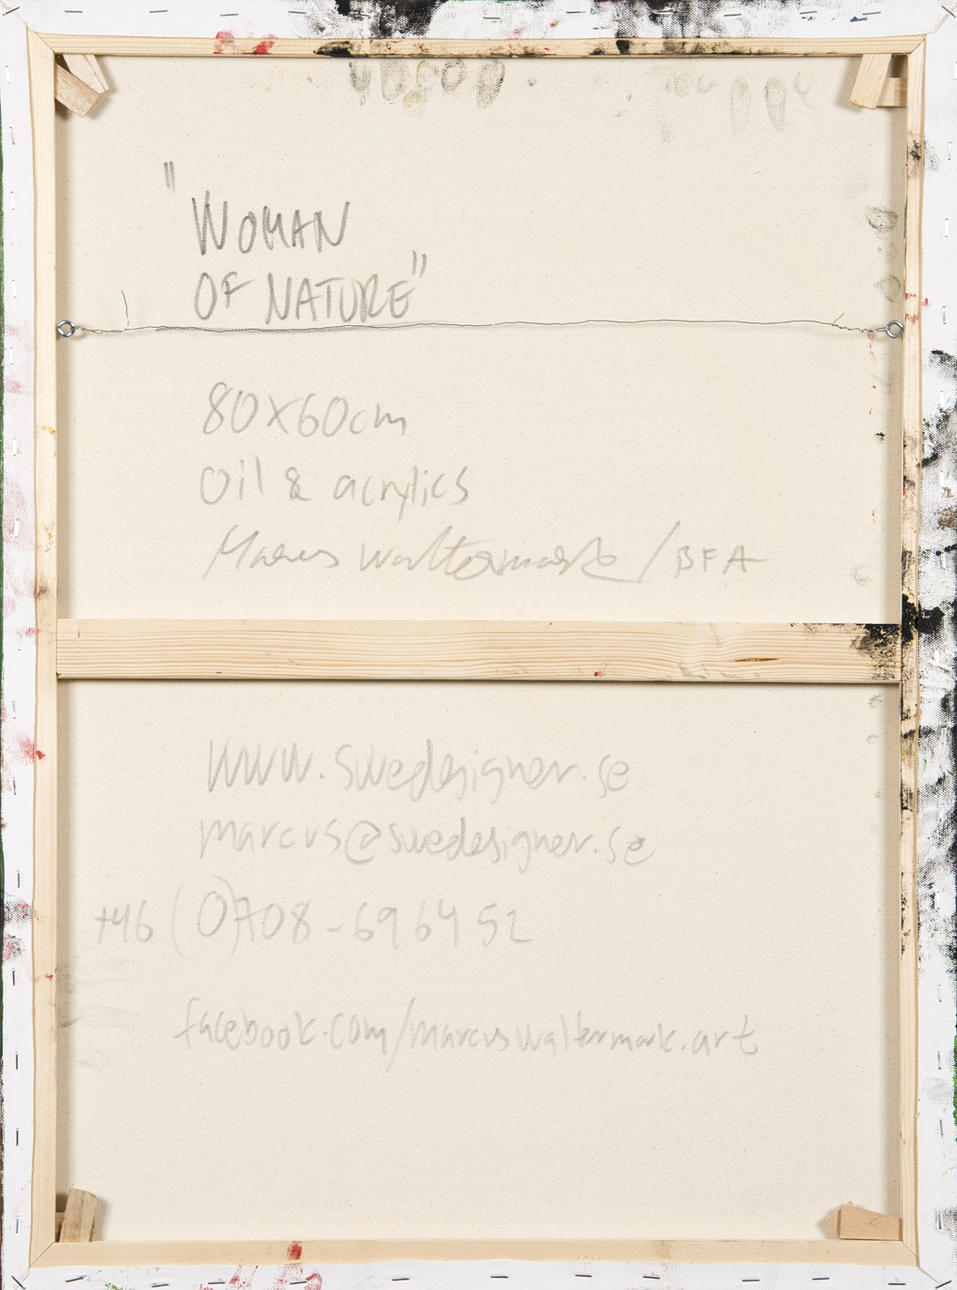 "WOMAN
OF NATURE"
80x60cm
Oil & acrylics
Marcus Waltermark / BFA
www.swedesigner.se
marcus@swedesigner.se
+46 (0)708-696452
facebook.com/marcuswaltermark.art